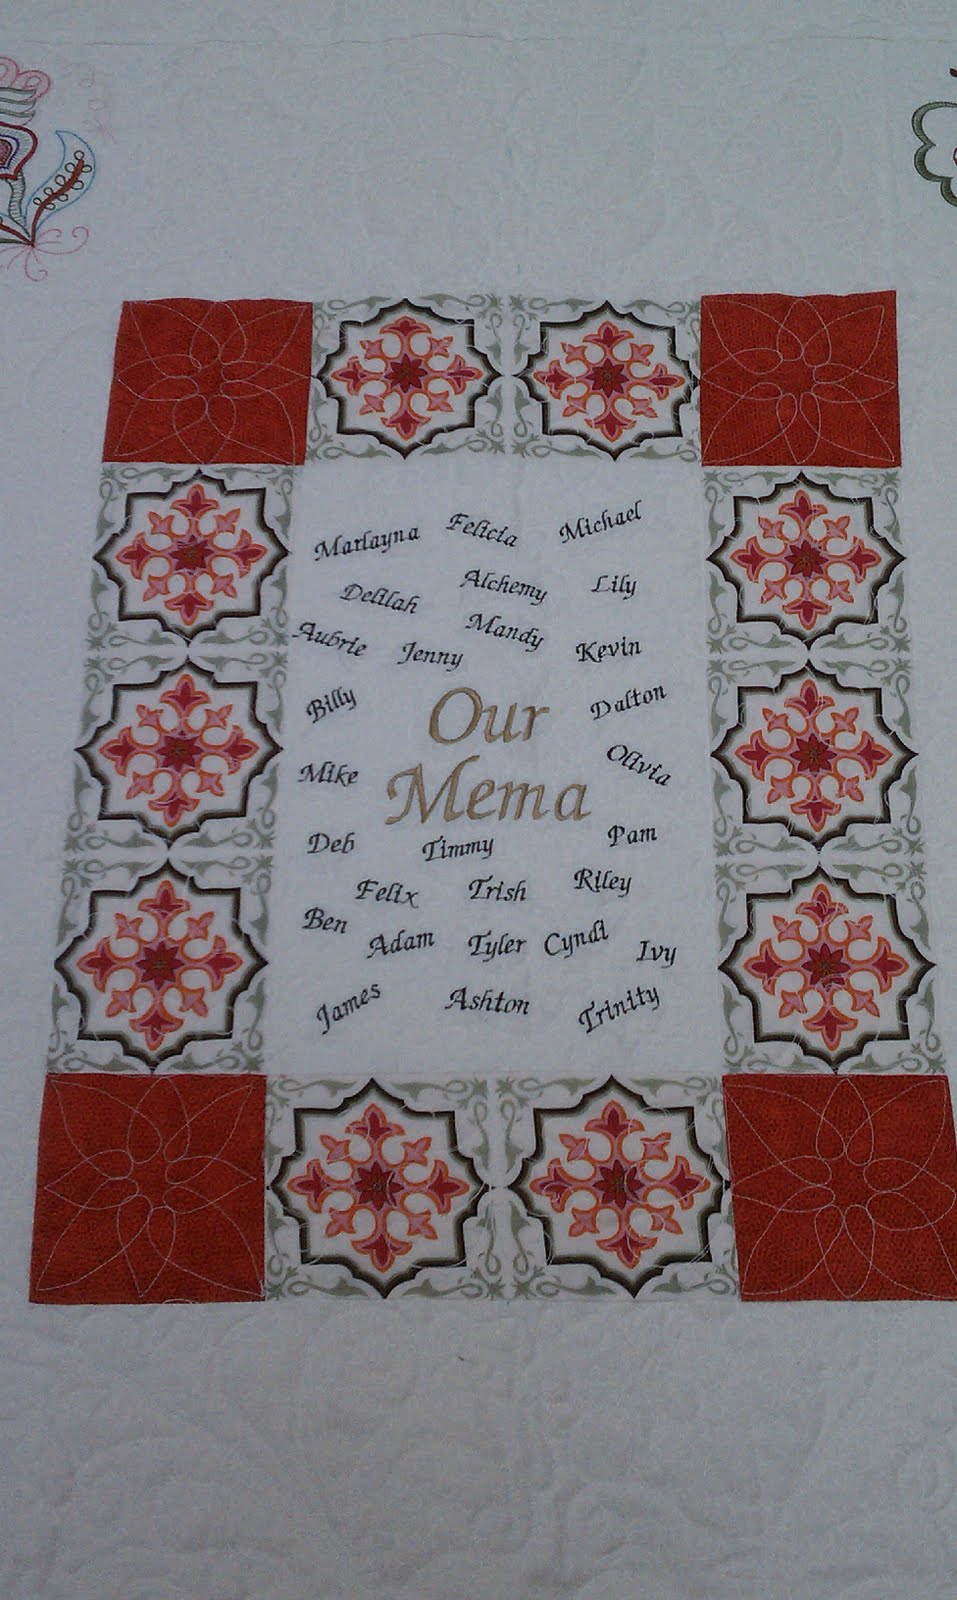 Marlayna Felicia Michael
Delilah Alchemy Lily
Aubrie Jenny Mandy Kevin
Billy Our Dalton
Mike Mema Olivia
Deb Timmy Pam
Felix Trish Riley
Ben Adam Tyler Cyndi Ivy
James Ashton Trinity